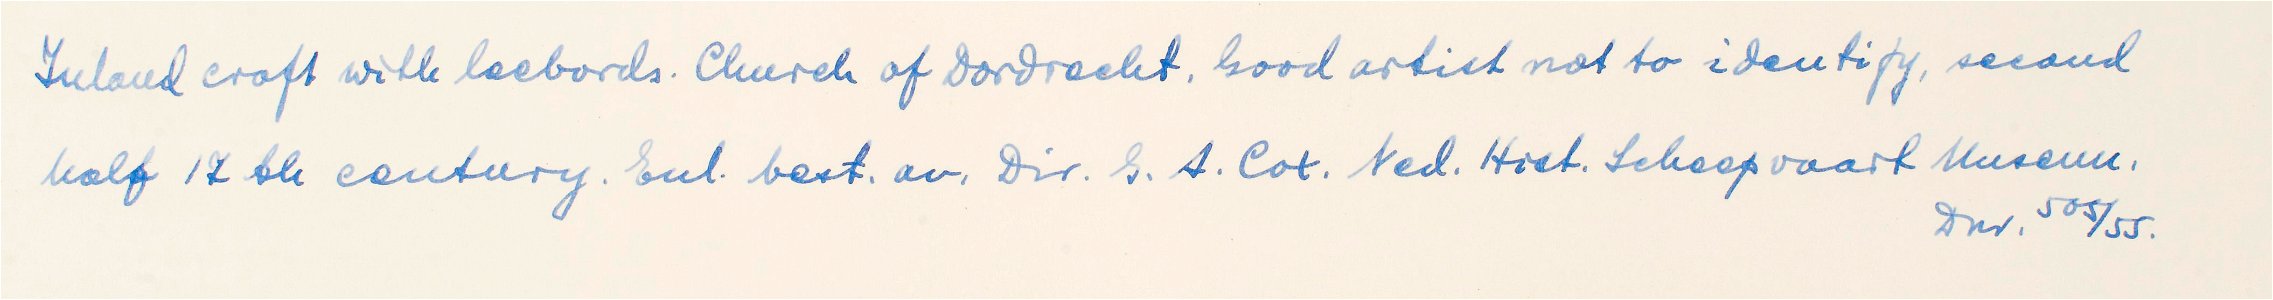 Inland craft with leebords. Church of Dordrecht. Good artist not to identify, second
half 17 th century. Enl. best. av. Dir. G. A. Cox. Ned. Hist. Scheepvaart Museum.
Dnr. 505/55.